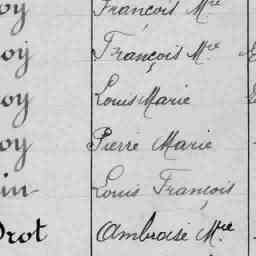 oy François Mie
oy François Mie
oy Louis Marie
oy Pierre Marie
in Louis François
Drot Ambroise Mie